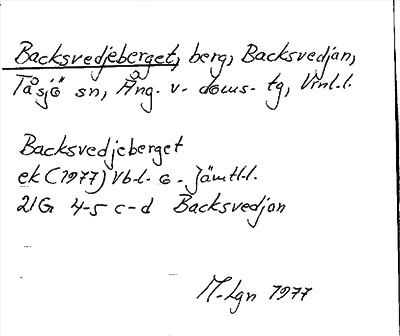 Backsvedjeberget, berg, Backsvedjan,
Tåsjö sn, Ång. v. doms. tg, Vnl.l.
Backsvedjeberget
ek (1977) Vb.l. o. Jämtl.l.
21G 4-5 c-d Backsvedjan
M.Lgn 1977